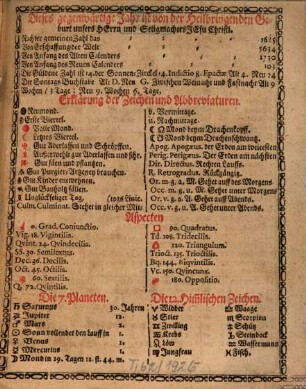 Dieses gegenwärtige Jahr ist von der Heilbringenden Ge-
burt unsers HErrn und Seligmachers JEsu Christi.
Nach der gemeinen Zahl das
Von Erschaffung der Welt 5634
Von Anfang des Alten Calenders 1730
Von Anfang des Neuen Calenders
Die Güldene Zahl ist 14. der Sonnen Circul 14. Indictio 8. Epactæ Alt 4. Neu 24
Die Sontags Buchstabe Alt D. Neu G. Zwischen Weinacht und Fasnacht Alt 9
Wochen / 3 Tage / Neu 9. Wochen 6. Tage.
Erklärung der Zeichen und Abbreviaturen.
Neumond.
Erste Viertel.
Volle Mond.
Letztes Viertel.
Gut Aderlassen und Schröpffen.
Gut Purgirn
Gut Kinder entwehnen.
Gut Bauholtz fällen.
Unglückseliger Tag.
Culm. Culminat. Stehet in gleicher
v. Vormittage.
n. Nachmittage.
☊ Mond beym Drachenkopff.
☋ Mond beym Drachenschwantz.
Apog. Apogæus. der Erden am weitesten
Perig. Perigæus. Der Erden am nächsten
Dir. Directus. Rechten Lauffs.
R. Retrogradus. Rückgängig.
Or. m. g. a. M. Gehet auff des Morgens
Occ. m. g. u. M. Gehet unter Morgens
Or. v. g. a. A. Gehet auff Abends.
Occ. v. g. u. A. Gehet unter Abends.
Aspecten
☌ 0. Grad. Conjunctio.
Vig. 18. Vigintilis.
Qvint. 24. Qvindecilis.
SS. 30. Semisextus.
Dec. 36. Decilis.
Oct. 45. Octilis.
60. Sextilis.
Q. 72. Qvintilis.
□ 90. Quadratus.
Td. 108. Tridecilis.
△ 120. Triangulum.
Trioct. 135. Trioctilis.
Bq. 144. Biqvintilis.
Vc. 150. Qvincunx.
☍ 180. Oppositio.
Die 7. Planeten.
♄ Saturnus 30. Jahren
♃ Jupiter 12
♂ Mars 2
☉ Sonn vollendet den lauff in 1
♀ Venus 1
☿ Mercurius 1
☽ Mond in 29. Tagen 12. st. 44. m.
Die 12. Himlischen Zeichen.
♈ Widder
♉ Stier
♊ Zwilling
♋ Krebs
♌ Löw
♍ Jungfrau
♎ Waage
♏ Scorpion
♐ Schütz
♑ Steinbock
♒ Wassermann
♓ Fisch.